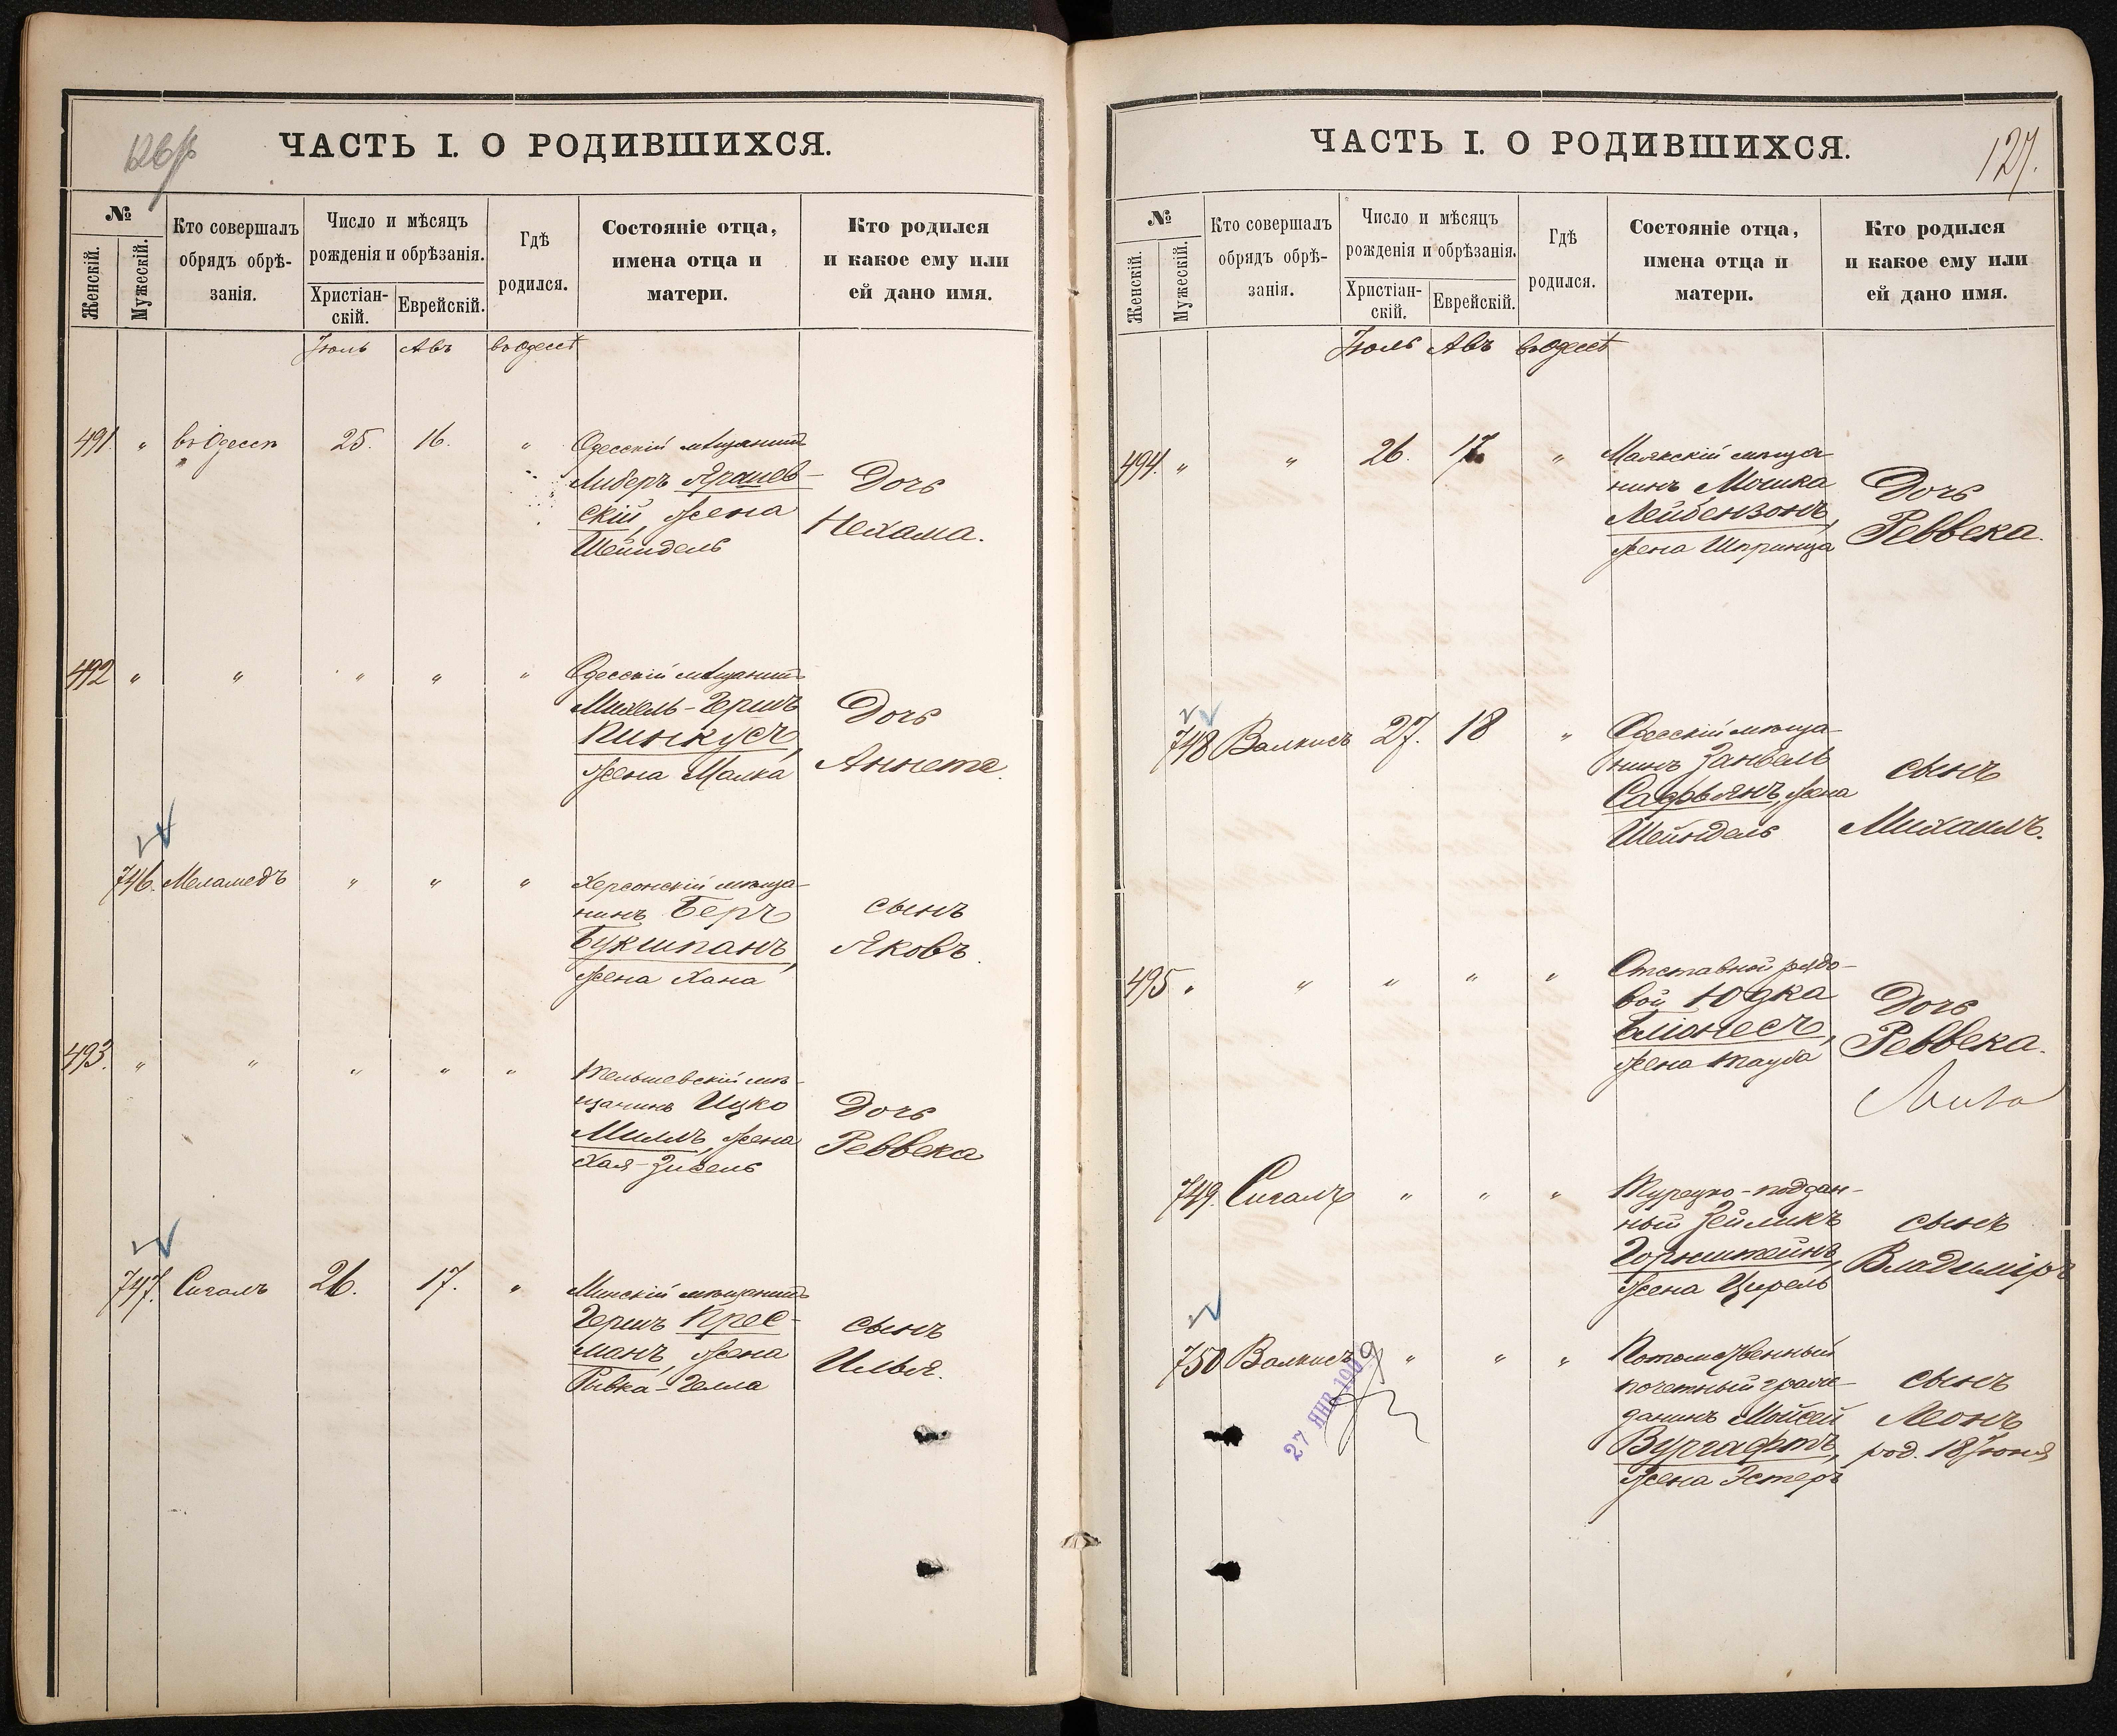 126
ЧАСТЬ I. О РОДИВШИХСЯ.
№
Женскій.
Мужескій.
Кто совершалъ
обрядъ обрѣ-
занія.
Число и мѣсяцъ
рожденія и обрѣзанія.
Христіан-
скій.
Еврейскій.
Гдѣ
родился.
Состояніе отца,
имена отца и
матери.
Кто родился
и какое ему или
ей дано имя.
Іюль Авъ въ Одессѣ
491. " въ Одессѣ 25. 16. " Одесскій мѣщанинъ
Либеръ Ярашев-
скій, жена
Шейндель
Дочь
Нехама.
492 " " " " " Одесскій мѣщанинъ
Михель-Гершъ
Пинкусъ,
жена Малка
Дочь
Аннета.
746. Меламедъ " " " Херсонскій мѣща-
нинъ Беръ
Букшпанъ,
жена Хана
сынъ
Яковъ.
493. " " " " " Тельшевскій мѣ-
щанинъ Ицко
Миллъ, жена
Хая-Зисель
Дочь
Реввека
747. Сигалъ 26. 17. " Минскій мѣщанинъ
Гершъ Прес-
манъ, жена
Ривка-Гелла
сынъ
Илья.
ЧАСТЬ I. О РОДИВШИХСЯ.
127.
№
Женскій.
Мужескій.
Кто совершалъ
обрядъ обрѣ-
занія.
Число и мѣсяцъ
рожденія и обрѣзанія.
Христіан-
скій.
Еврейскій.
Гдѣ
родился.
Состояніе отца,
имена отца и
матери.
Кто родился
и какое ему или
ей дано имя.
Іюль Авъ въ Одессѣ
494. " " 26. 17. " Маякскій мѣща
нинъ Мошка
Лейбензонъ,
жена Шпринца
Дочь
Реввека.
748 Валкисъ 27. 18 " Одесскій мѣща-
нинъ Занвель
Сафьянъ, жена
Шейндель
сынъ
Михаилъ.
495 " " " " " Отставной рядо-
вой Юдка
Бліонесъ,
жена Тауба
Дочь
Реввека.
749. Сигалъ " " " Турецко-поддан-
ный Зейликъ
Горнштейнъ,
жена Цирель
сынъ
Владиміръ
750 Валкисъ " " " Потомственный
почетный граж-
данинъ Мойсей
Вургафтъ,
жена Эстеръ
сынъ
Леонъ
род. 18 Іюня
27 ЯНВ. 1909